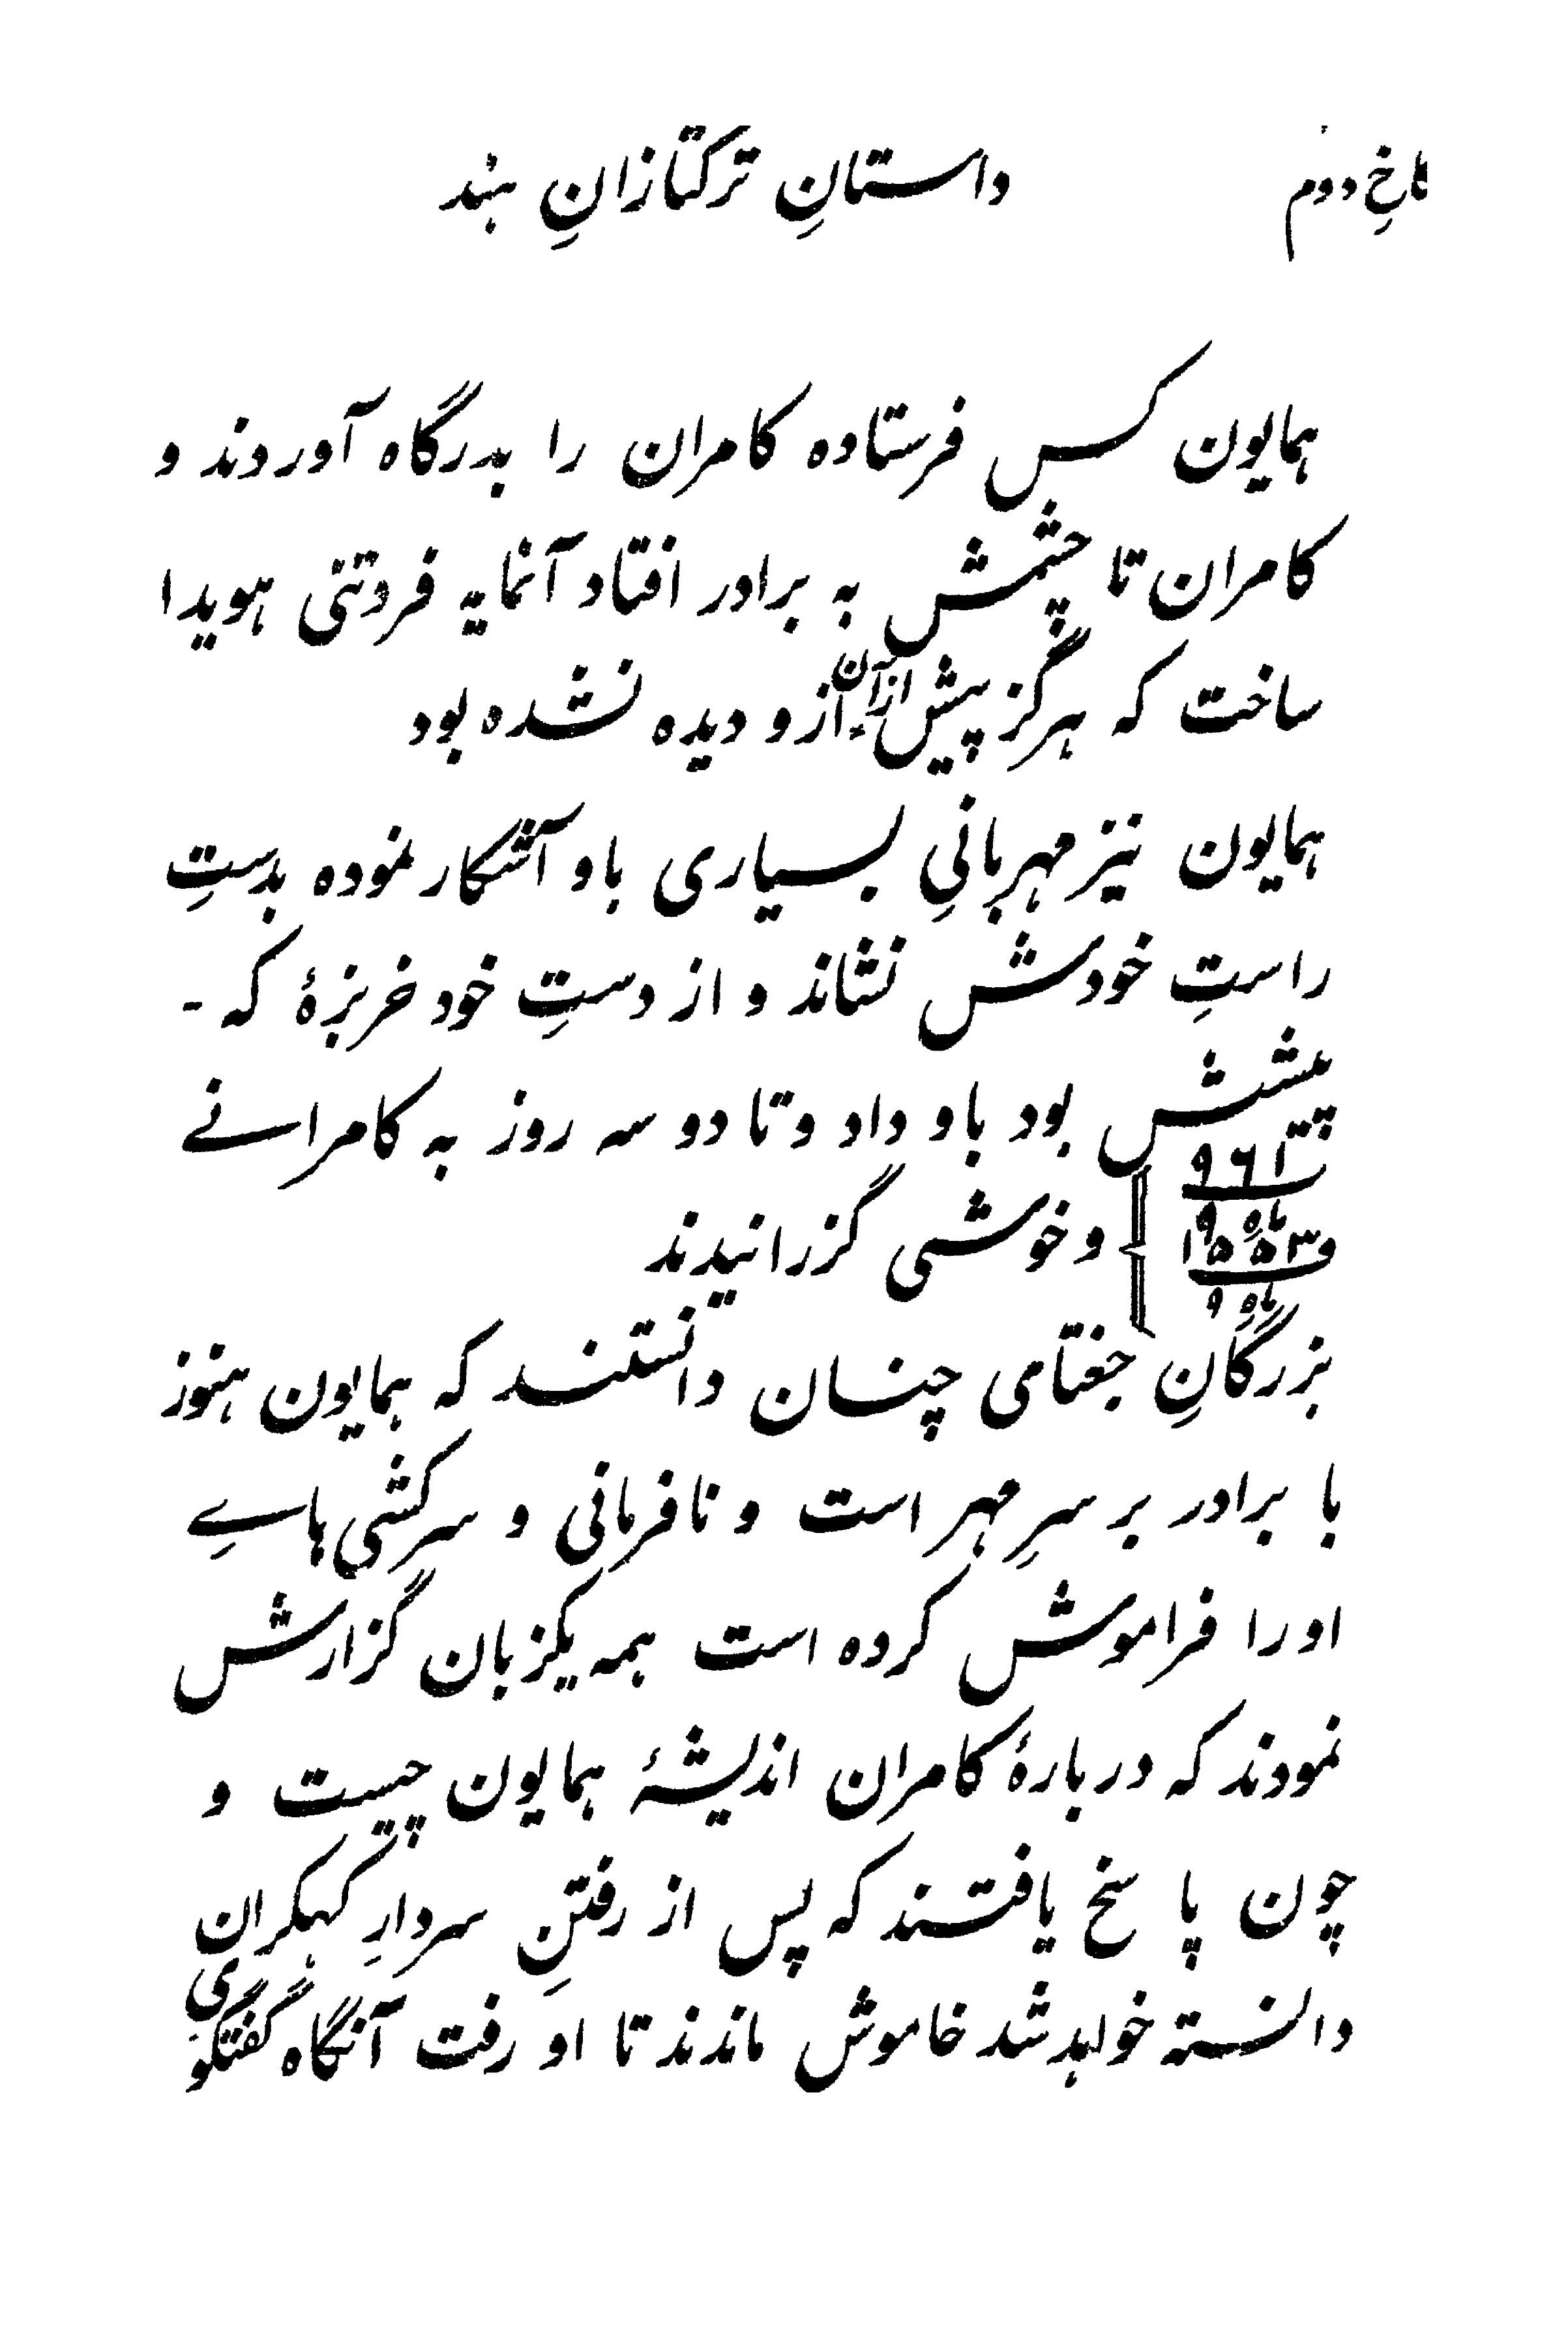 کاخِ دوم
داستانِ ترکتازانِ هند
همایون کس فرستاده کامران را بدرگاه آوردند و
کامران تا چشمش به برادر افتاد آنمایه فروتنی هویدا
ساخت که هرگز پیش ازآن ازو دیده نشده بود
همایون نیز مهربانیِ بسیاری باو آشکار نموده بدستِ
راستِ خودش نشاند و از دستِ خود خربزهٔ که -
پیشش بود باو داد و تا دو سه روز به کامرانے
۹۶۱
ماه ۹
و ۱۵۵۳
ماه ۹
و خوشی گزرانیدند
بزرگانِ جغتامی چنان دانستند که همایون هنوز
با برادر بر سرِ مهر است و نافرمانی و سرکشی هاےِ
اورا فراموش کرده است همه یکزبان گزارش
نمودند که دربارهٔ کامران اندیشهٔ همایون چیست و
چون پاسخ یافتند که پس از رفتنِ سردارِ کهکران
دانسته خواهد شد خاموش ماندند تا او رفت آنگاه گفتگوی